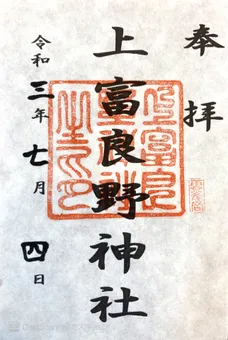 奉拝
上富良野神社
令和三年七月四日